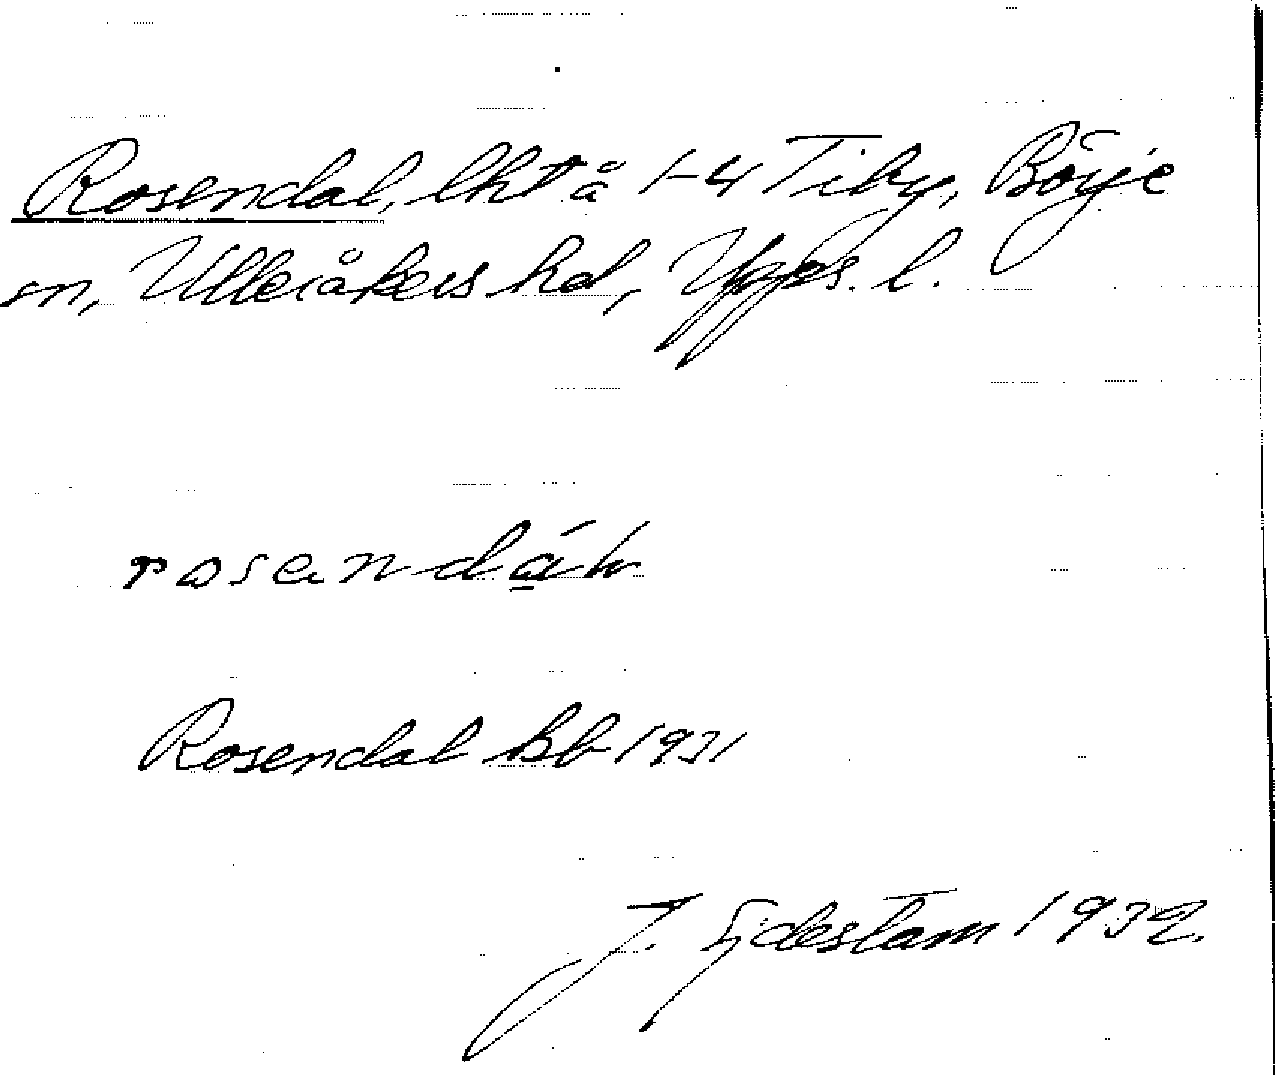 Rosendal, lht å 1-4 Tiby, Börje
sn, Ulleråkers hd, Upps. l.
Rosendal kb 1931
J. Ejdestam 1932.